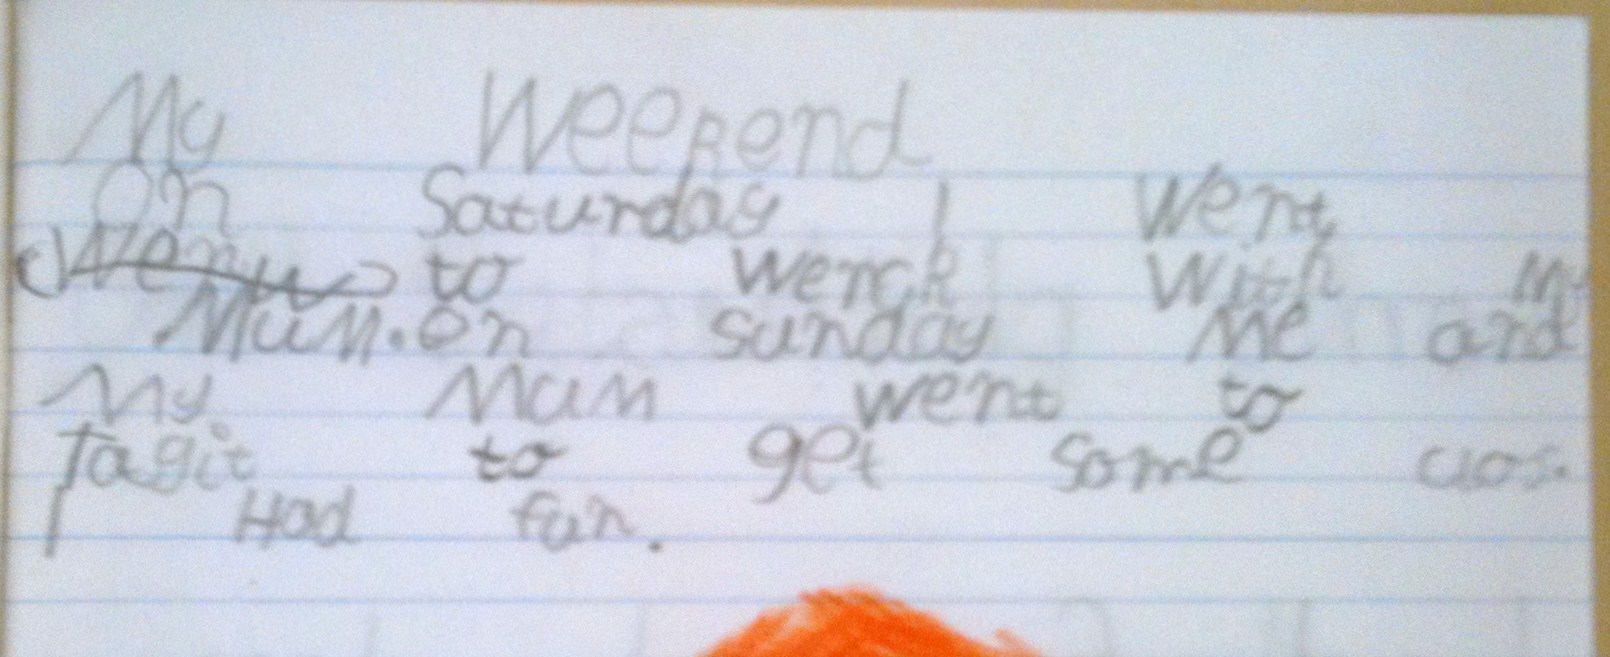 My Weekend
On Saturday I Went
to werck With my
Mum. on sunday Me and
My Mum went to
Tagit to get some clos.
I Had fun.